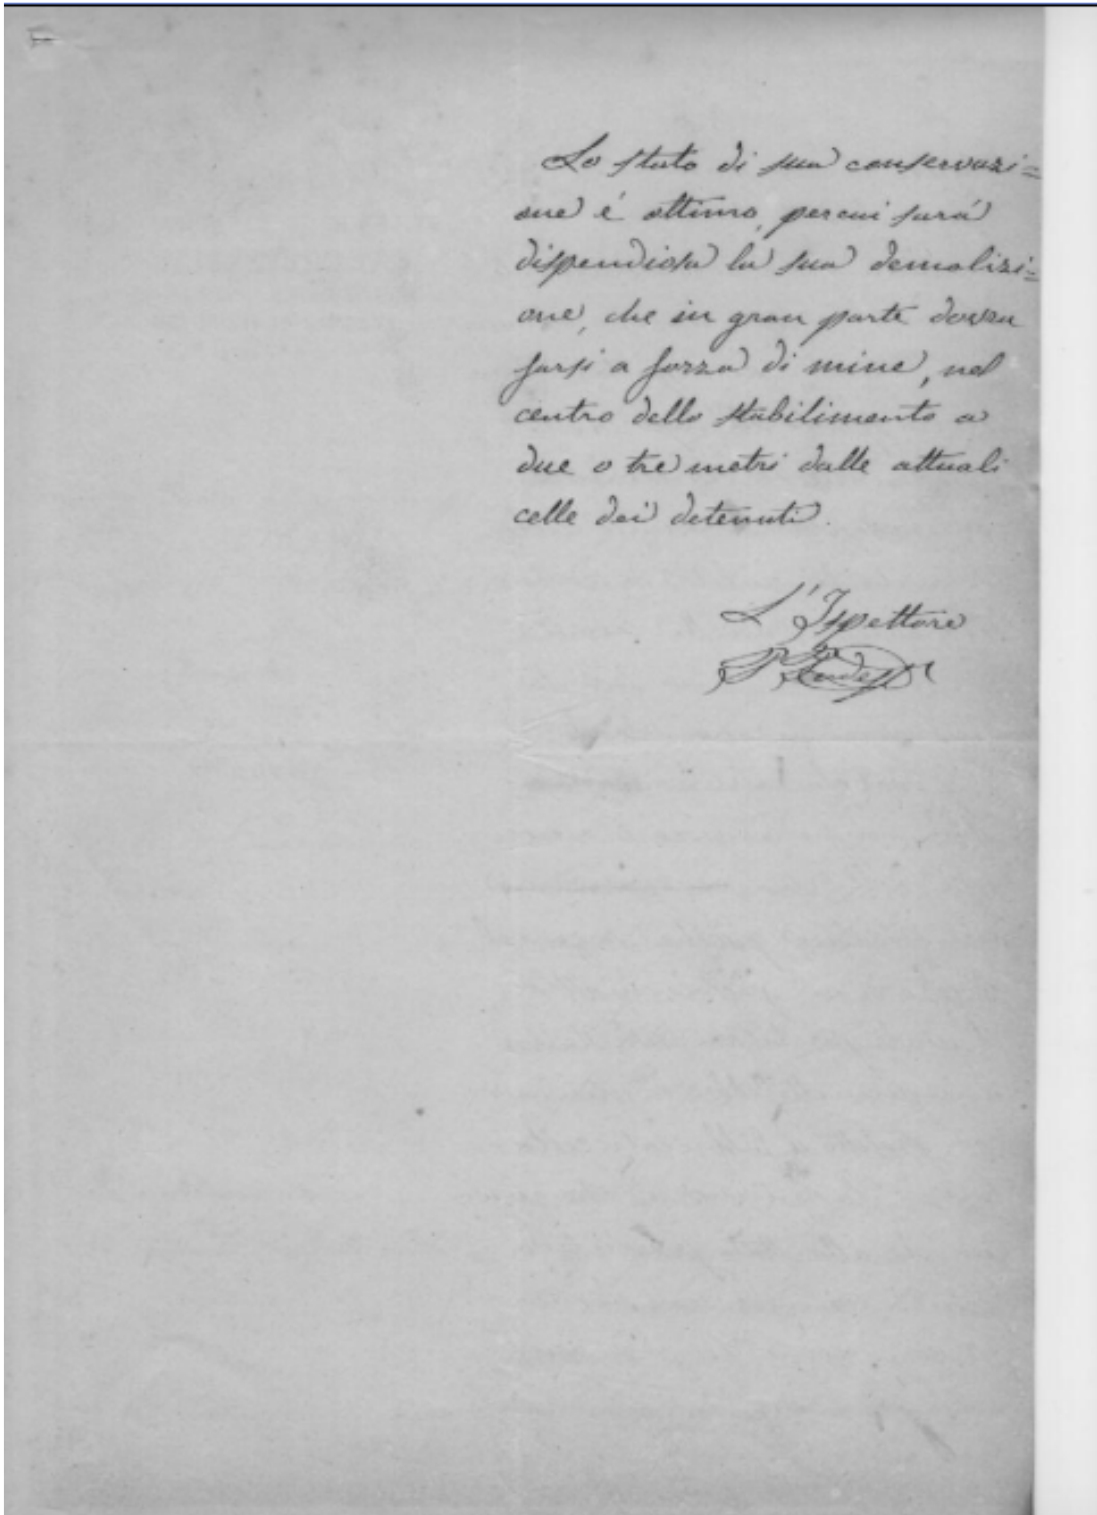 Lo stato di sua conservazi=
one é ottimo, percui sará
dispendiosa la sua demolizi=
one, che in gran parte dovra
farsi a forza di mine, nel
centro dello stabilimento a
due o tre metri dalle attuali
celle dei detenuti.
L'Ispettore